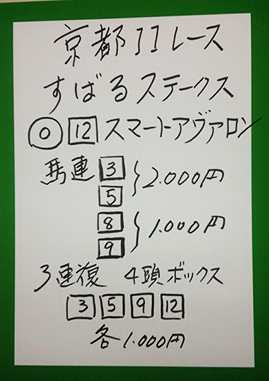 京都11レース
すばるステークス
◎ 12 スマートアヴァロン
馬連 3
5 } 2.000円
8
9 } 1.000円
3連復 4頭ボックス
3 5 9 12
各1.000円